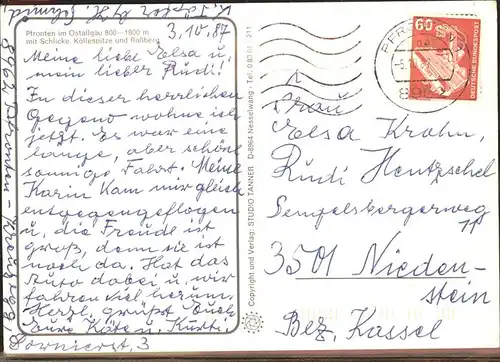 Pfronten im Ostallgäu 800–1800 m
mit Schlicke, Köllespitze und Roßberg
3.10.87
Meine liebe Elsa u.
mein lieber Rudi!
In dieser herrlichen
Gegend wohne ich
jetzt. Es war eine
lange, aber schöne
sonnige Fahrt. Meine
Karin kam mir gleich
entgegengeflogen
u. die Freude ist
groß, denn sie ist
noch da. Hat das
Auto dabei u. wir
fahren viel herum.
Herzl. grüßt Euch
Eure Käten. Kurti.
8962 Pfronten - Kreuzegg,
Dornierst. 3
Copyright und Verlag: STUDIO TANNER D-8964 Nesselwang · Tel. 0 83 61 / 211
PFRONTEN
896
60
DEUTSCHE BUNDESPOST
Frau
Elsa Krohn,
Rudi Hentzschel
Sengelsbergerweg
11
3501 Nieden-
stein
Bez. Kassel